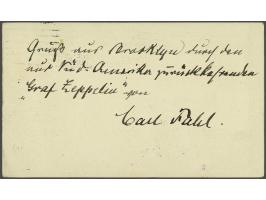 Gruß aus Brooklyn durch den
aus Süd-Amerika zurückkehrenden
"Graf Zeppelin" von
Carl Pahl.